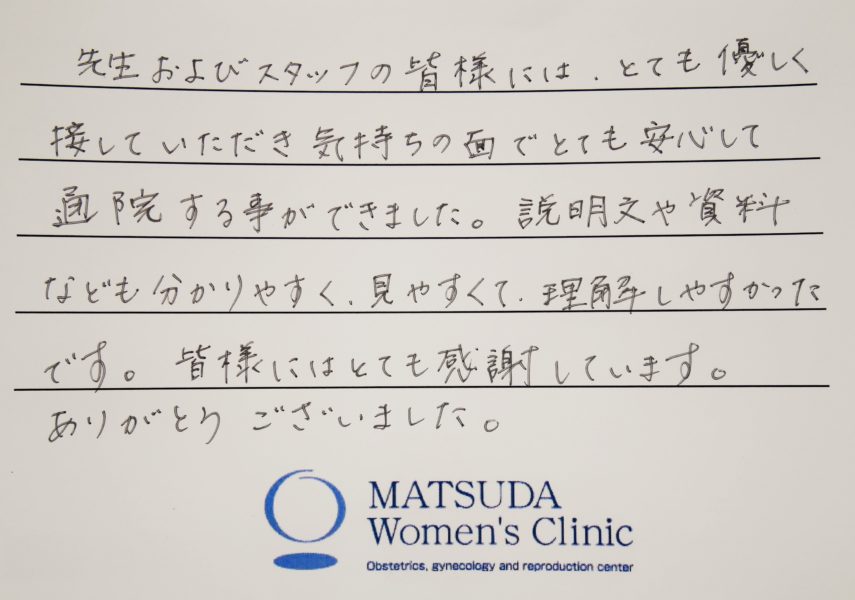 先生およびスタッフの皆様には、とても優しく
接していただき気持ちの面でとても安心して
通院する事ができました。説明文や資料
なども分かりやすく、見やすくて、理解しやすかった
です。皆様にはとても感謝しています。
ありがとうございました。
MATSUDA
Women's Clinic
Obstetrics, gynecology and reproduction center